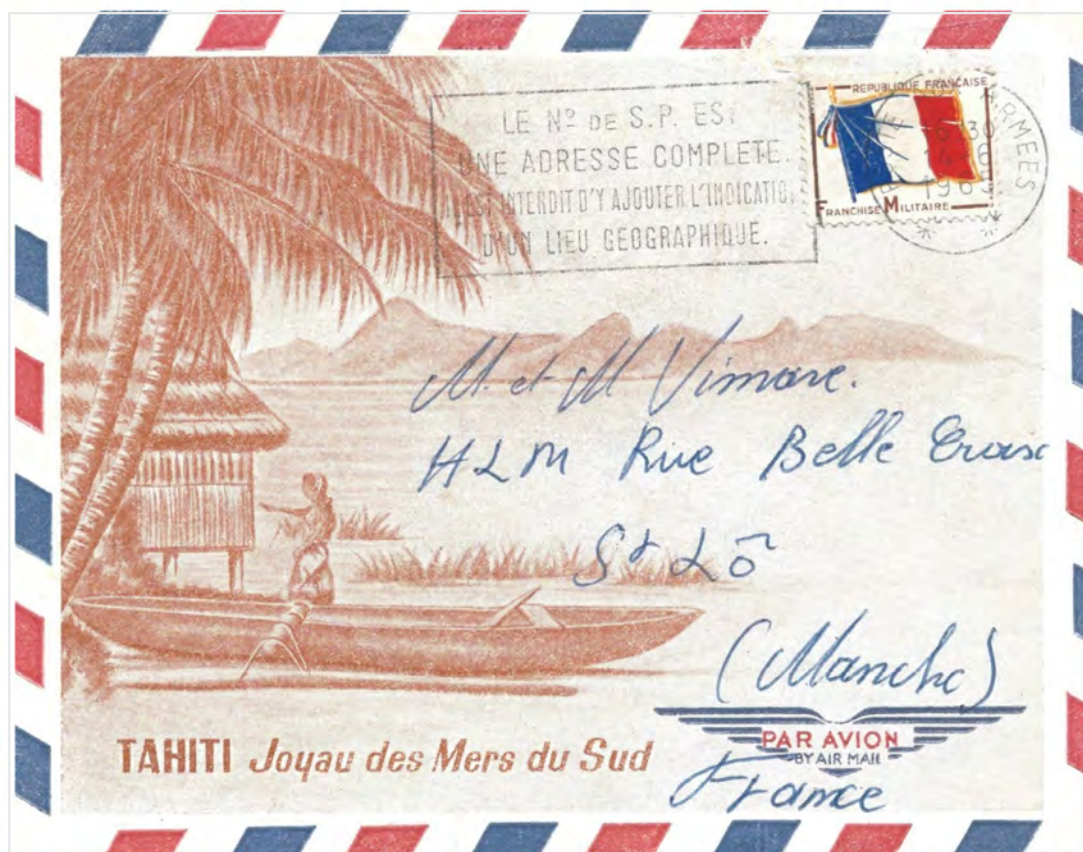 LE Nº DE S.P. EST
UNE ADRESSE COMPLETE.
IL EST INTERDIT D'Y AJOUTER L'INDICATION
D'UN LIEU GEOGRAPHIQUE.
REPUBLIQUE FRANÇAISE
FRANCHISE MILITAIRE
ARMEES
M. et M Vimare.
HLM Rue Belle
St Lô
(Manche)
PAR AVION
BY AIR MAIL
France
TAHITI Joyau des Mers du Sud